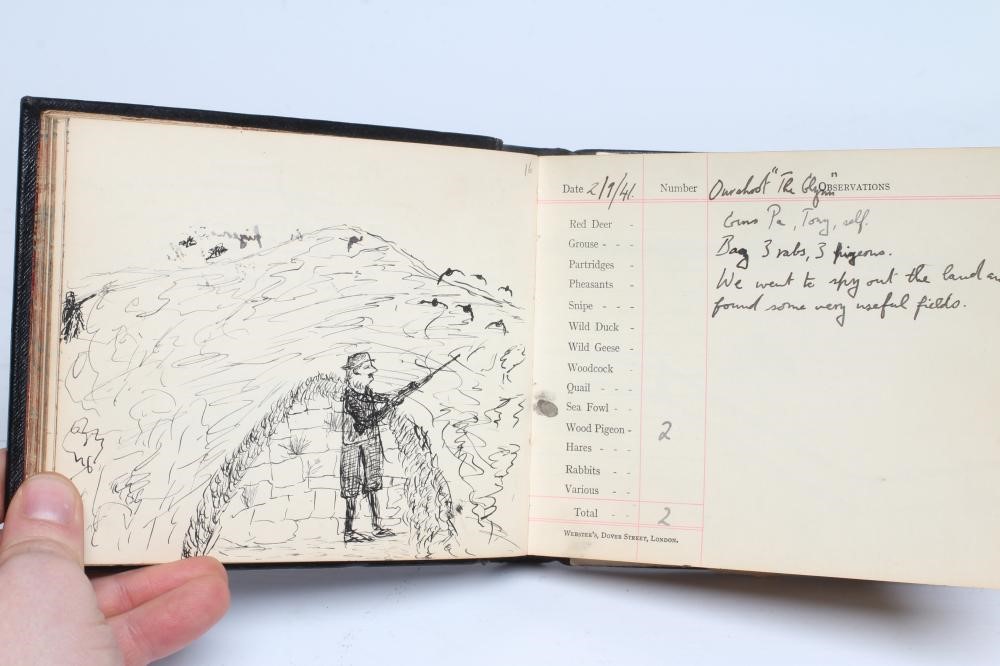 16
Date 2/9/41. Number OBSERVATIONS
Our shoot "The Glynn"
Red Deer -
Guns Pa, Tony, self.
Grouse - - -
Bag 3 rabs, 3 pigeons.
Partridges -
We went to spy out the land
Pheasants -
found some very useful fields.
Snipe - - -
Wild Duck -
Wild Geese -
Woodcock -
Quail - - -
Sea Fowl - -
Wood Pigeon - 2
Hares - - -
Rabbits - -
Various - -
Total - - 2
WEBSTER'S, DOVER STREET, LONDON.